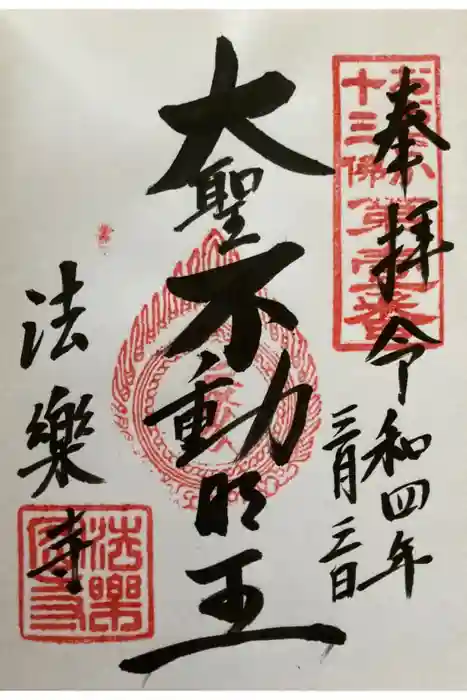 奉拝 令和四年
三月三日
十三佛
第壹番
大聖不動明王
法樂寺
法樂